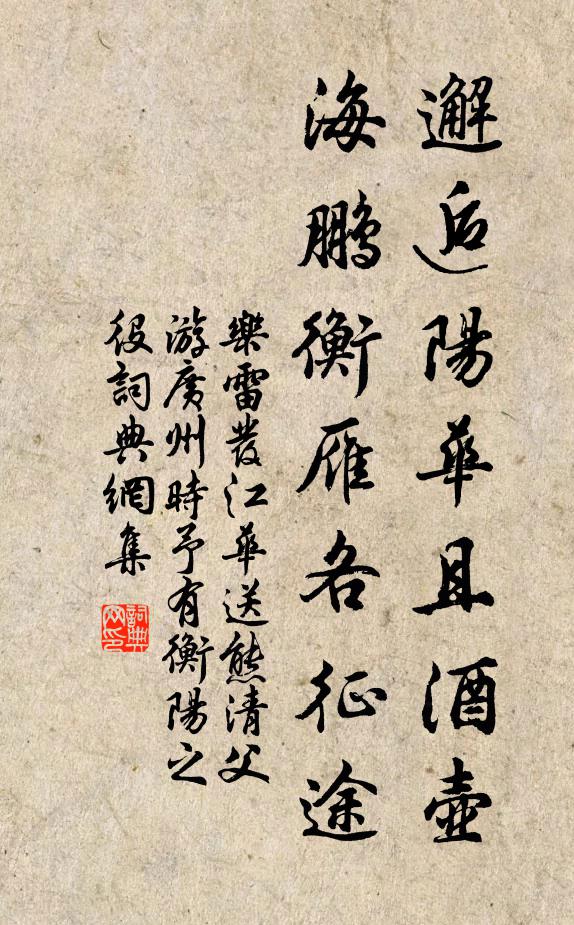 邂逅陽華且酒壺
海鵬衡雁各征途
樂雷發江華送熊清父
游广州時予有衡陽之
役詞典網集
詞典網印